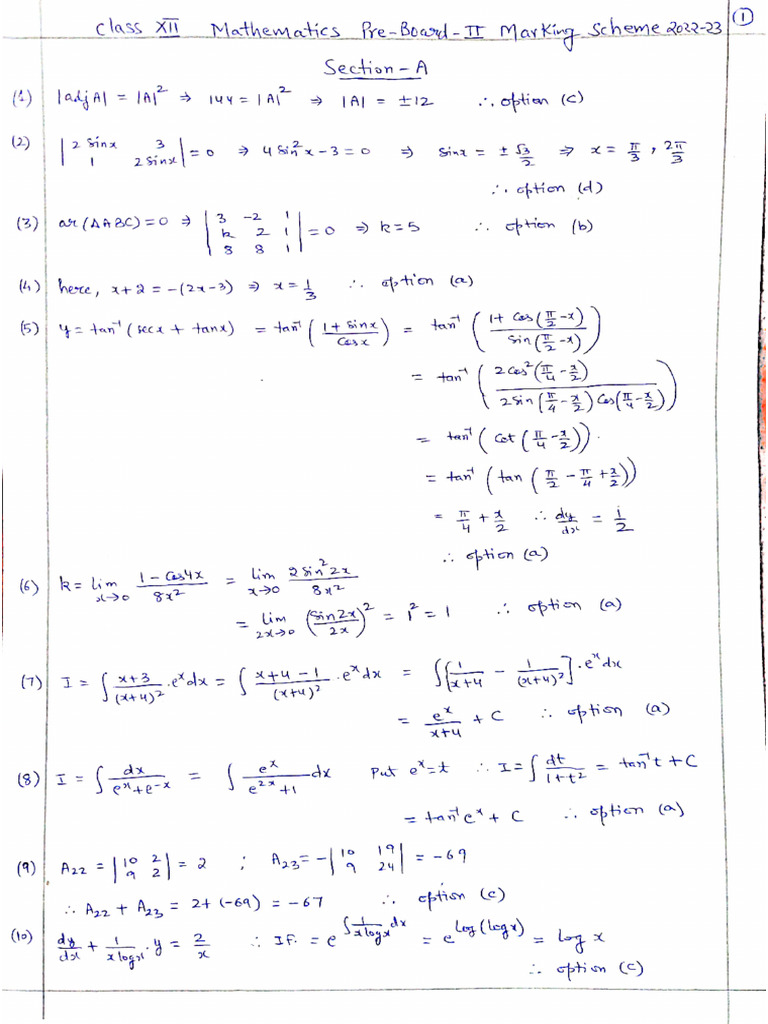 Class XII Mathematics Pre-Board-II Marking Scheme 2022-23 ①
Section-A
(1) |adjA| = |A|² ⇒ 144 = |A|² ⇒ |A| = ±12 ∴ option (c)
(2) | 2 sinx 3 ; 1 2 sinx | = 0 ⇒ 4 sin²x - 3 = 0 ⇒ sinx = ± √3/2 ⇒ x = π/3, 2π/3
∴ option (d)
(3) ar(ΔABC) = 0 ⇒ | 3 -2 1 ; k 2 1 ; 8 8 1 | = 0 ⇒ k = 5 ∴ option (b)
(4) here, x+2 = -(2x-3) ⇒ x = 1/3 ∴ option (a)
(5) y = tan⁻¹(secx + tanx) = tan⁻¹((1 + sinx)/cosx) = tan⁻¹((1 + cos(π/2 - x))/sin(π/2 - x))
= tan⁻¹(2cos²(π/4 - x/2)/(2 sin(π/4 - x/2) cos(π/4 - x/2)))
= tan⁻¹(cot(π/4 - x/2)).
= tan⁻¹(tan(π/2 - π/4 + x/2))
= π/4 + x/2 ∴ dy/dx = 1/2
∴ option (a)
(6) k = lim x→0 (1 - cos4x)/8x² = lim x→0 2 sin²2x/8x²
= lim 2x→0 (sin2x/2x)² = 1² = 1 ∴ option (a)
(7) I = ∫ (x+3)/(x+4)² . eˣdx = ∫ (x+4-1)/(x+4)² . eˣdx = ∫[1/(x+4) - 1/(x+4)²] . eˣdx
= eˣ/(x+4) + C ∴ option (a)
(8) I = ∫ dx/(eˣ+e⁻ˣ) = ∫ eˣ/(e²ˣ+1) dx Put eˣ = t ∴ I = ∫ dt/(1+t²) = tan⁻¹t + C
= tan⁻¹eˣ + C ∴ option (a)
(9) A₂₂ = | 10 2 ; 9 2 | = 2 ; A₂₃ = -| 10 19 ; 9 24 | = -69
∴ A₂₂ + A₂₃ = 2+(-69) = -67 ∴ option (c)
(10) dy/dx + 1/(x logx) . y = 2/x ∴ IF. = e^(∫ 1/(x logx) dx) = e^(log(logx)) = log x
∴ option (c)